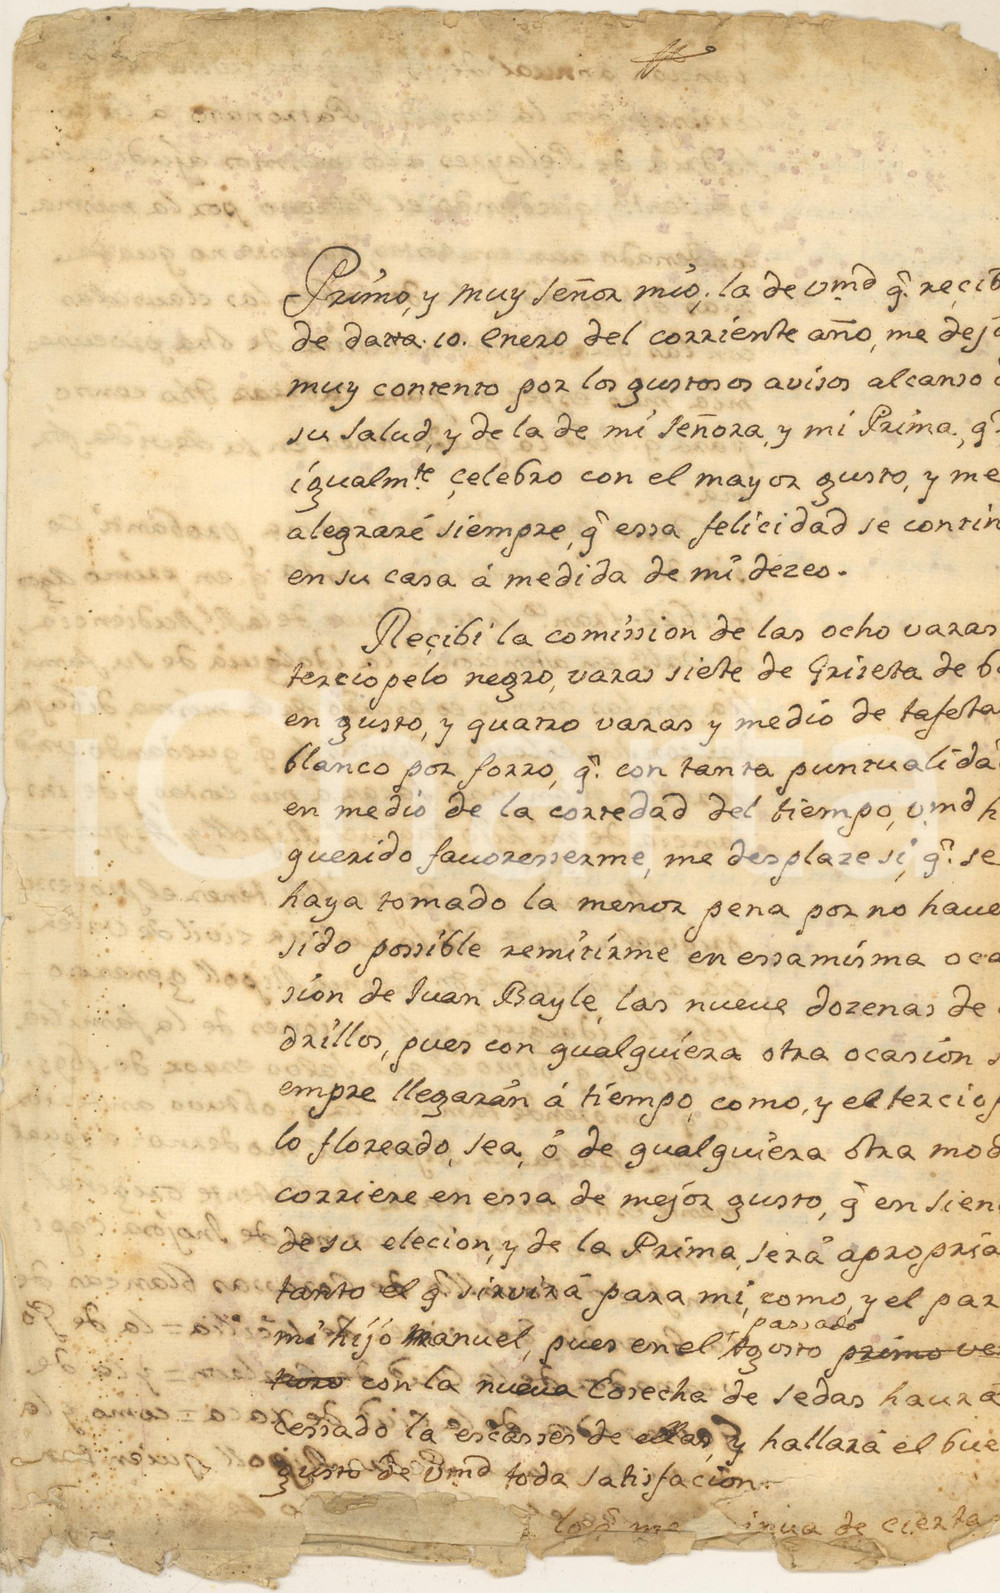 Primo, y muy señor mio, la de Vmd q̃. recib
de datta. 10. enero del corriente año, me dejó
muy contento por los gustosos avisos alcanso
su salud, y de la de mi señora, y mi Prima, q̃.
igualmte. çelebro con el mayor gusto, y me
alegraré siempre, q̃ essa felicidad se contin
en su casa á medida de mi dezeo.
Reçibi la comission de las ocho varas
terciopelo negro, varas siete de Griseta de b
en gusto, y quatro varas y medio de tafeta
blanco por forro, q̃. con tanta puntualida
en medio de la cortedad del tiempo, vmd h
querido favoresserme, me desplaze si, q̃. se
haya tomado la menor pena por no haue
sido possible remitirme en essamisma oca
sion de Juan Bayle, las nueve dozenas de
drillos, pues con qualquiera otra ocasion s
empre llegarán á tiempo, como, y el terciop
lo floreado, sea, ó de qualquiera otra mod
corriere en essa de mejor gusto, q̃ en sien
de su elecion, y de la Prima, será apropria
tanto el q̃ sirvirá para mi, como, y el par
passado
mi hijo Manuel, pues en el Agosto primo ve
turo con la nueva Cosecha de sedas haurá
cessado la escasses de ellas, y hallará el bue
gusto de Vmd toda satisfacion.
lo q̃ me inua de cierta